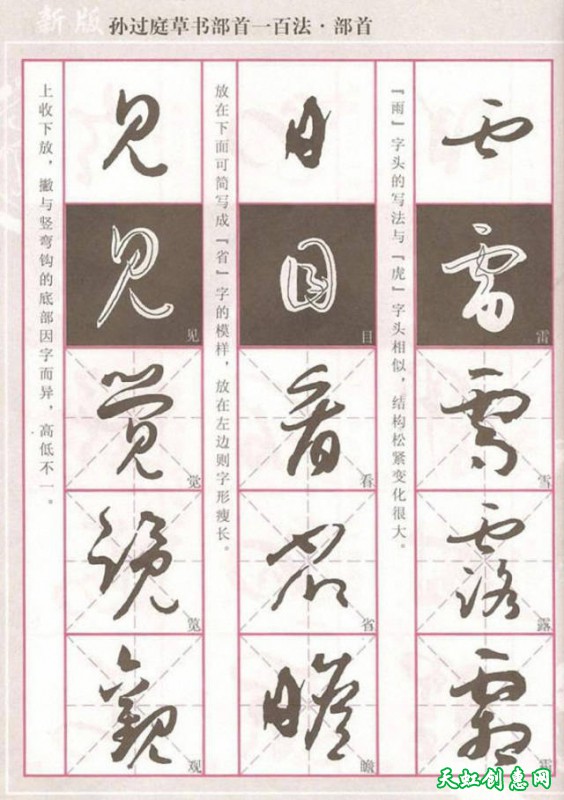 新版
孙过庭草书部首一百法·部首
雷
雷
雪
雪
露
露
霜
『雨』字头的写法与『虎』字头相似，结构松紧变化很大。
目
目
目
看
看
省
省
瞻
瞻
放在下面可简写成『省』字的模样，放在左边则字形瘦长。
见
见
见
觉
觉
览
览
观
观
上收下放，撇与竖弯钩的底部因字而异，高低不一。
天虹创惠网